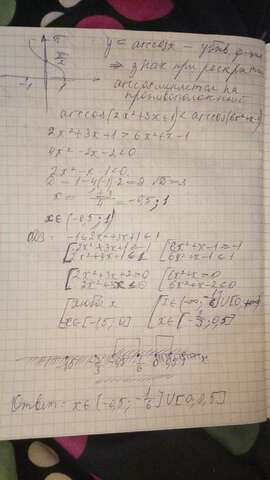 y = arccosx - убыв ф-ция
⇒ знак при раскрытии
arccos меняется на
противоположный
arccos(2x²+3x+1) < arccos(6x²+x-1)
2x²+3x+1 > 6x²+x-1
4x²-2x-2<0
2x²-x-1<0
D = 1-4(-1)2=9 √D=3
x = = -0,5; 1
x∈(-0,5; 1)
ОДЗ: -1≤2x²+3x+1≤1
2x²+3x+1≥-1 6x²+x-1≥-1
2x²+3x+1≤1 6x²+x-1≤1
2x²+3x+2≥0 6x²+x≥0
2x²+3x≤0 6x²+x-2≤0
любое x
x∈[-1,5; 0]
Ответ: x∈(-0,5; -1/6] ∪ [0; 0,5]